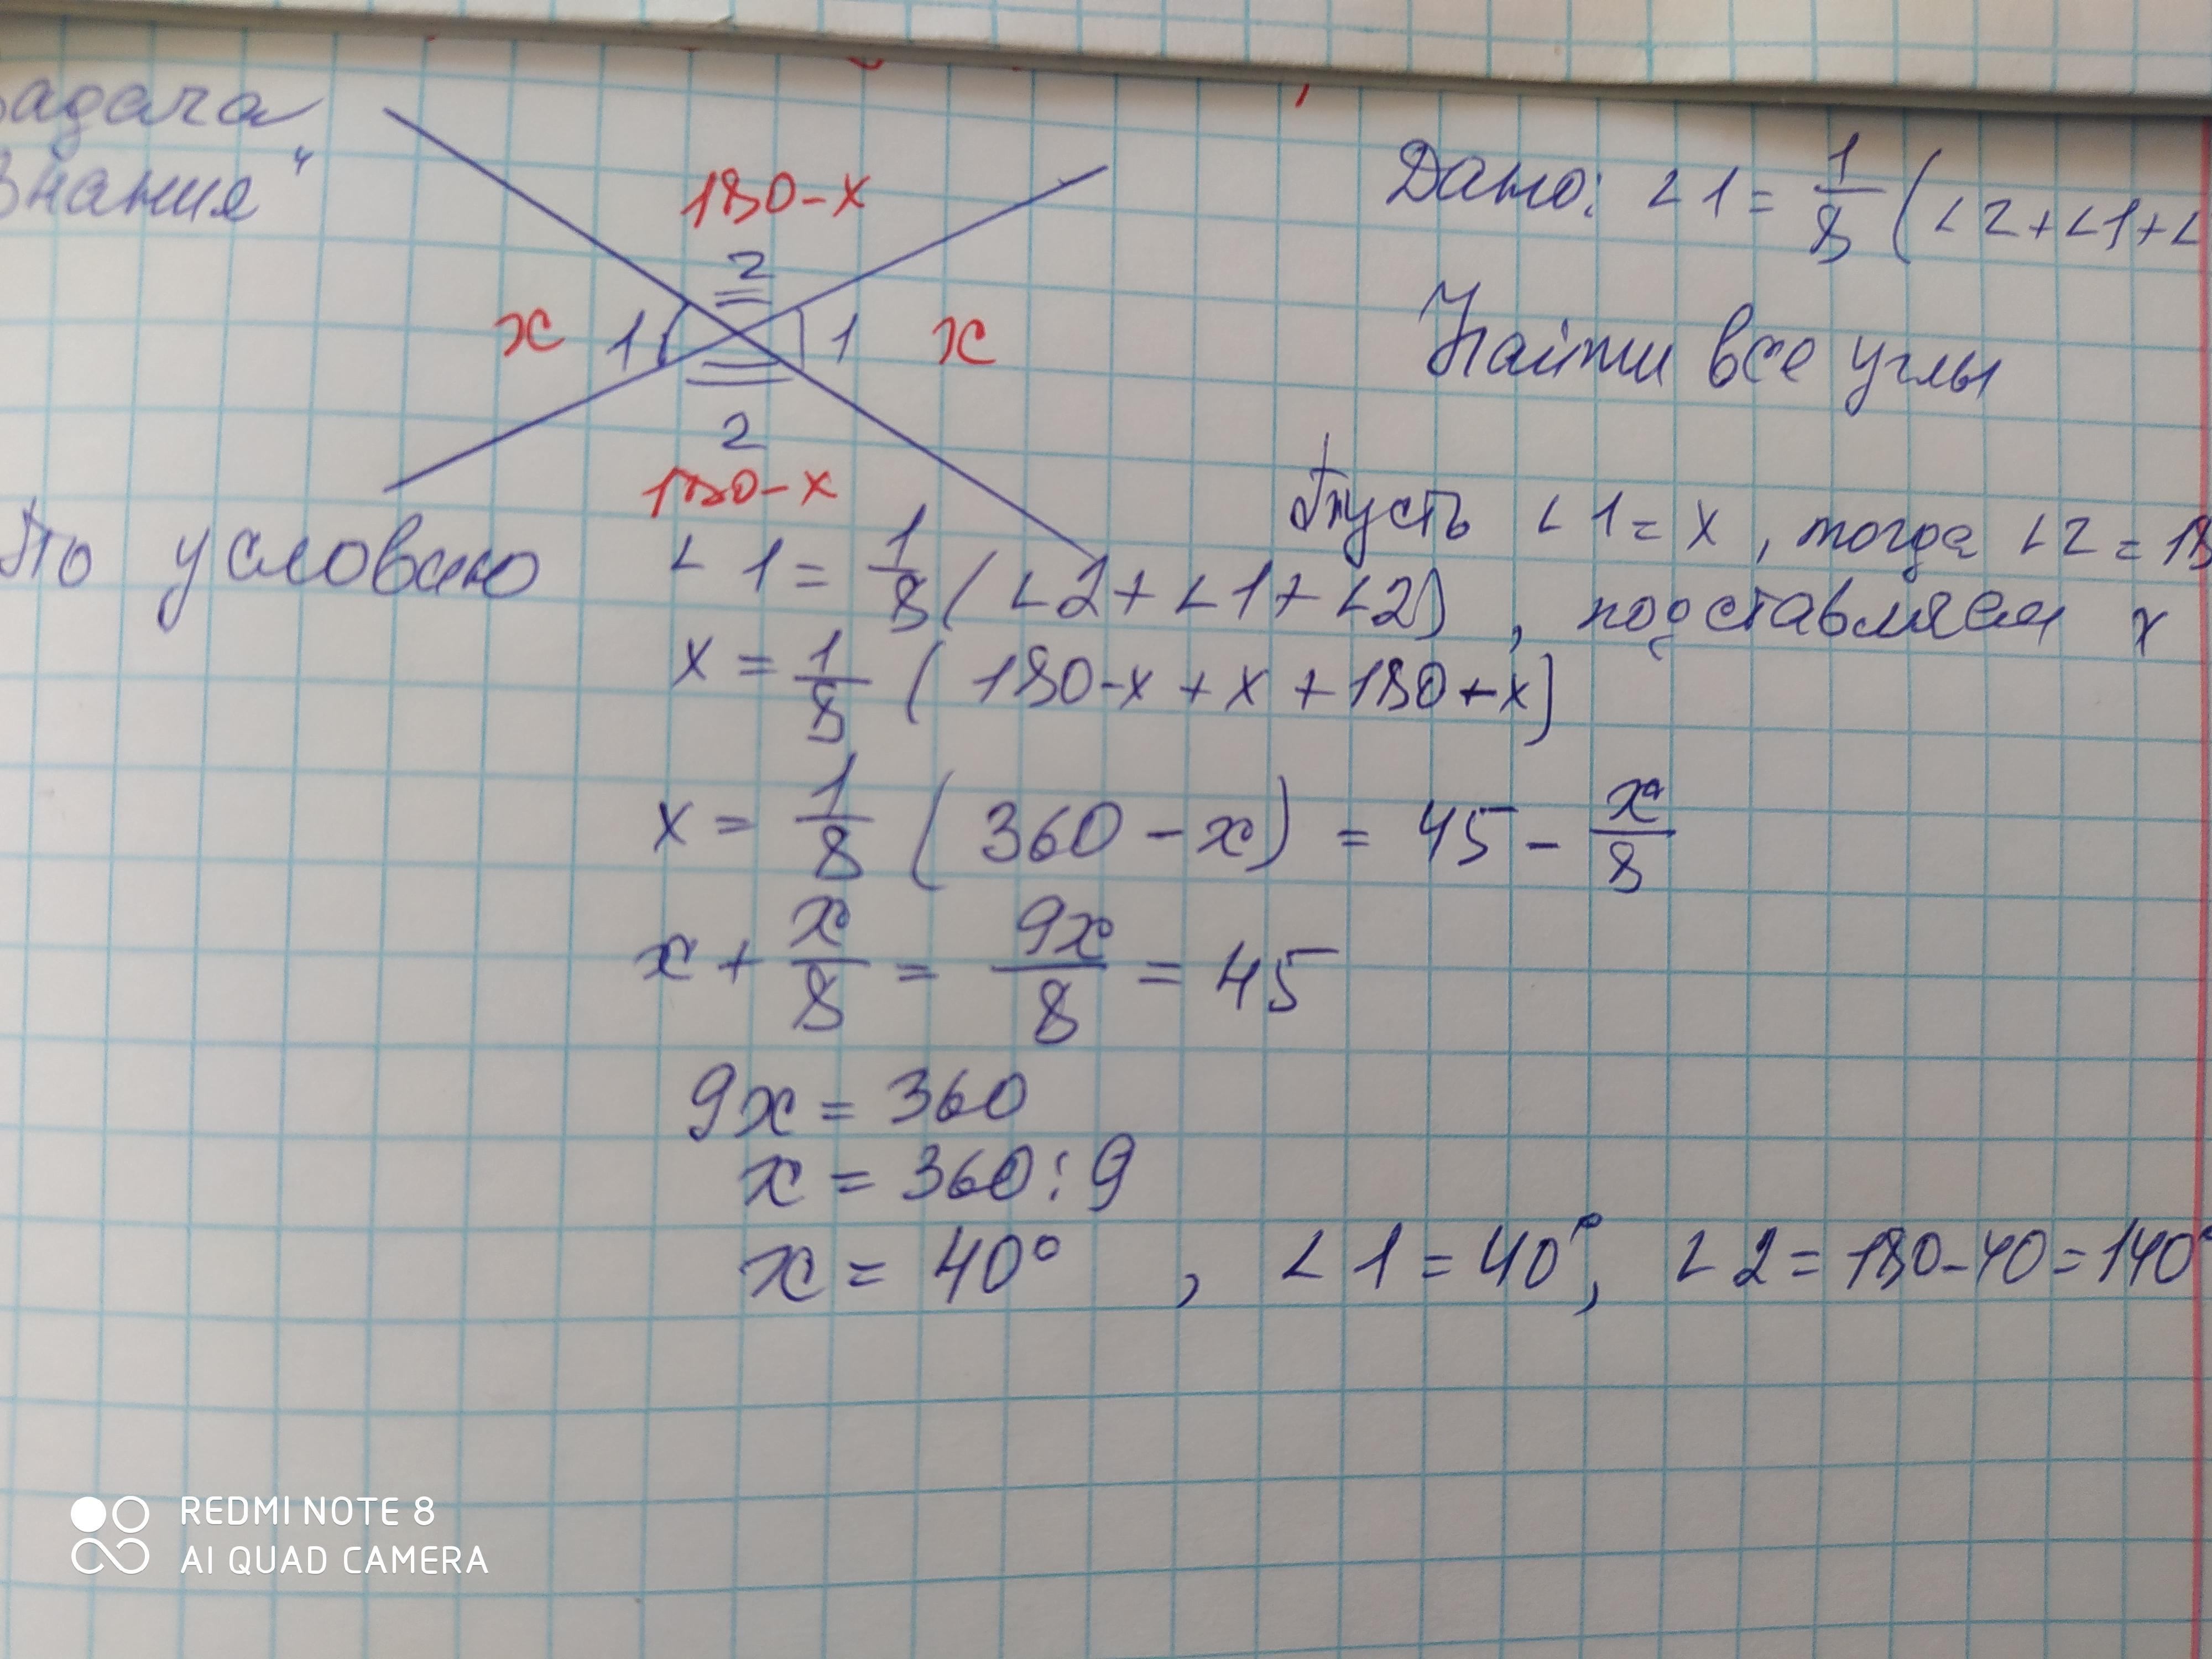 адача
Знания"
180-x
2
x 1 1 x
2
180-x
Дано: ∠1 = 1/8 (∠2+∠1+∠
Найти все углы
Пусть ∠1 = x, тогда ∠2 = 18
По условию ∠1 = 1/8 (∠2+∠1+∠2), подставляем x
x = 1/8 (180-x + x + 180-x)
x = 1/8 (360 - x) = 45 - x/8
x + x/8 = 9x/8 = 45
9x = 360
x = 360:9
x = 40°, ∠1 = 40°, ∠2 = 180-40 = 140°
REDMI NOTE 8
AI QUAD CAMERA